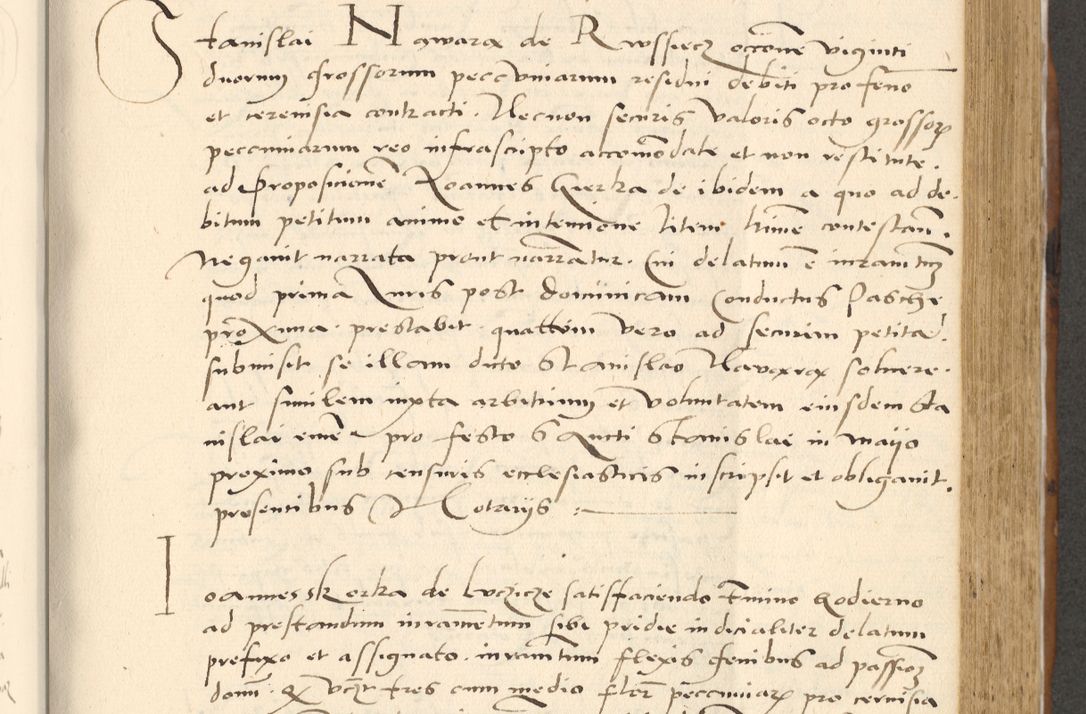 Stanislai Nawara de Russiecz occōne viginti
duorum grossorum peccuniarum residui debiti pro feno
et cerevisia contracti. Necnon securis valoris octo grossorꝝ
peccuniarum reo infrascripto accomōdate et non restitute.
ad Proposicionē Joannes Gierka de ibidem a quo ad de-
bitum petitum animo et intencione litem hmōe contestan̄.
Negavit narrata prout narrātur. Cui delatum ē iuramētum
quod prima Juris post dominicam Conductus Pasche
proxima prestabit. quattem vero ad securim petitā.
submisit se illam dicto Stanislao Nawara solvere.
aut similem iuxta arbitrium et voluntatem eiusdem Sta
nislai emē pro festo Sancti Stanislai in Mayo
proximo sub censuris ecclesiasticis inscripsit et obligavit.
presentibus Notariis
Ioannes Skorka de Luczicze satisfaciendo tmīno hodierno
ad prestandum iuramētum sibi pridie iudicialiter delatum
prefixo et assignato. iuramtum flexis genibus ad passionē
domī. Qz tres cum medio flor̄ peccuniarꝝ pro cervisia